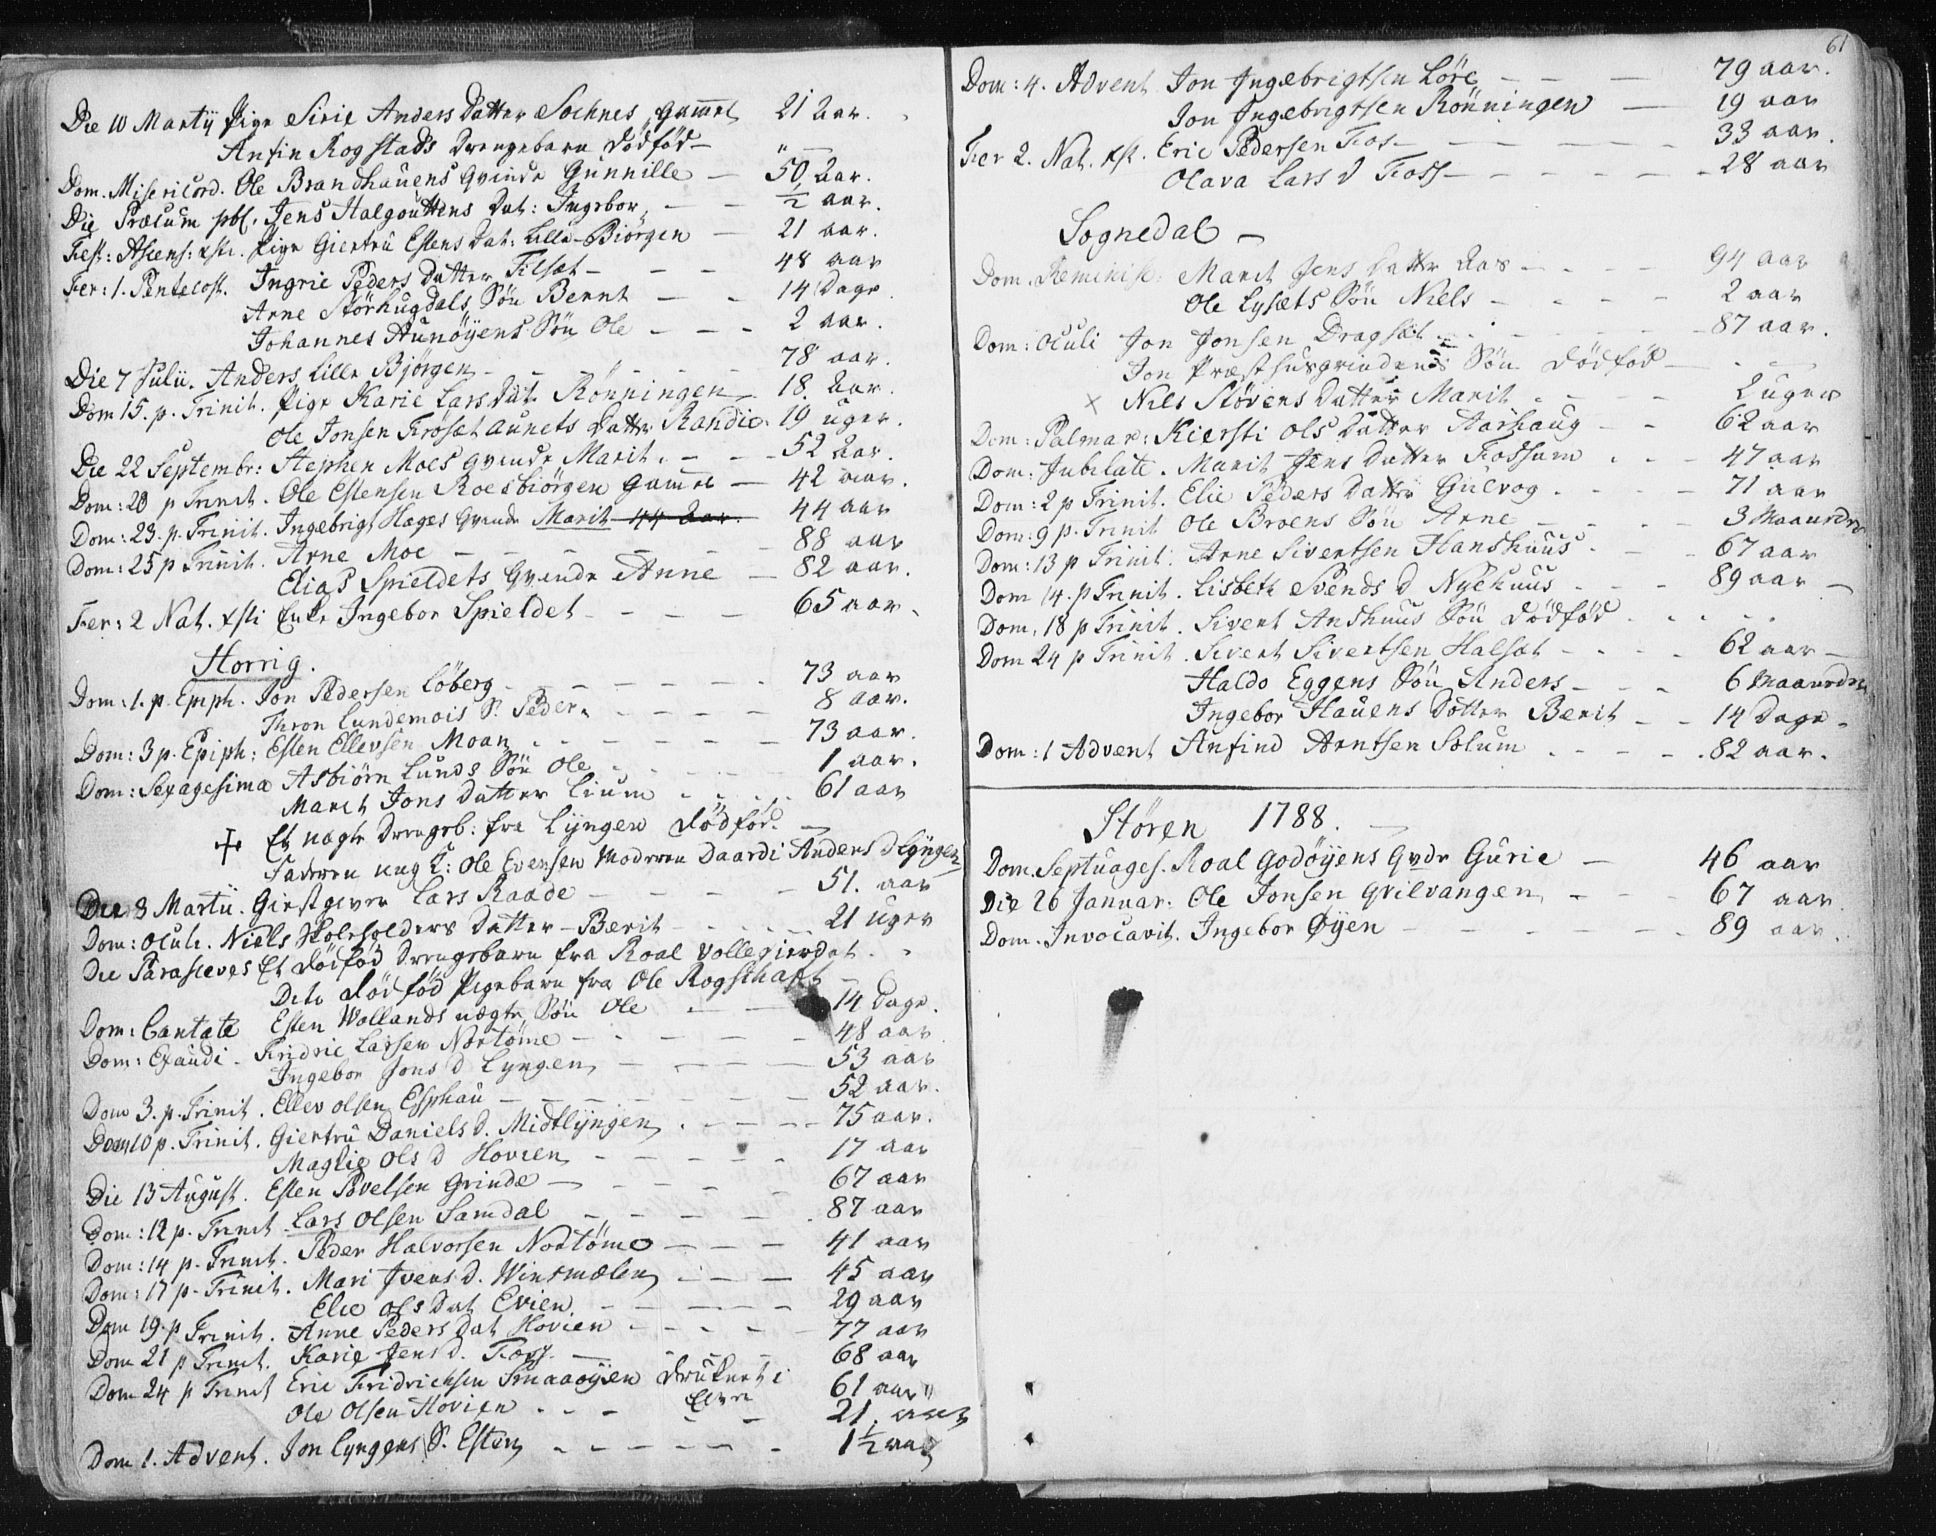 Die 10 Martij Pige Sirie Anders Datter Sochnes, gammel 21 Aar.
Anfin Rogstads Drengebarn dödföd — " —
Dom. Misericord. Ole Brandhauens Qvinde Gunnille — 50 Aar.
Die Prælum pbl. Jens Halgouttens Dat: Ingebor, — — ½ aar.
Fest: Ascens: xsti. Pige Giertru Estens Dat: Lille-Biörgen — 21 aar.
Fer: 1. Pentecost. Ingrie Peders Datter Filset — — — 48 aar
Arne Störhugdals Sön Bernt — — 14 Dage.
Johannes Aunöyens Sön Ole — — — 2 aar.
Die 7 Julii. Anders Lille Bjórgen — — — — 78 aar.
Dom 15. p. Trinit. Pige Karie Lars Dat. Rönningen — 18. Aar.
Ole Jonsen Frosetaunets Datter Randie. 19 uger.
Die 22 Septembr: Stephen Moes Qvinde Marit. — — 52 Aar.
Dom: 20 p Trinit. Ole Estensen Roesbiörgen gammel — 42 aar.
Dom: 23. p. Trinit. Ingebrigt Hages Qvinde Marit 44 Aar. 44 aar
Dom: 25 p Trinit. Arne Moe — — — — — 88 aar
Elias Spieldets Qvinde Anne — 82 aar.
Fer: 2 Nat. xsti Enke Ingebor Spieldet — — — 65 aar.
Horrig.
Dom: 1. p. Epiph. Jon Pedersen Löberg — — — — 73 aar
Thron Lundemois S. Peder. — — — 8 aar.
Dom: 3 p. Epiph: Esten Ellevsen Moan — — — — 73 aar.
Dom: Sexagesima Asbiörn Lunds Sön Ole — — — 1 aar.
Marit Jons Datter Lium — — — 61 aar
+ Et uægte Drengeb: fra Lyngen dödföd. —
Faderen ung K: Ole Evensen Moderen Daardi Anders d Lyngen
Die 8 Martii. Giestgiver Lars Raade — — — — 51. aar
Dom: Oculi. Niels Skoleholders Datter Berit — — — 21 uger
Die Parasceves Et dödföd Drengebarn fra Roal Vollegierdet.
Dito dödföd Pigebarn fra Ole Rogsthart —
Dom: Cantate Esten Wollands uægte Sön Ole — — 14 Dage.
Dom: Exaudi. Fridric Larsen Nortöme — — — — 48 aar
Ingebor Jons d Lyngen, — — — 53 aar
Dom 3. p. Trinit. Ellev Olsen Esphau — — — — 52 aar.
Dom 10 p. Trinit. Giertru Daniels d. Midtlyngen, — — — 75 aar.
Magdie Ols d Hovien — — — — 17 aar
Die 13 August. Esten Povelsen Grinde — — — — 67 aar
Dom: 12 p. Trinit. Lars Olsen Samdal — — — — 87 aar
Dom: 14 p. Trinit. Peder Halvorsen Nortöme — — — 41 aar
Dom: 17 p. Trinit. Mari Ivers d. Winsmelen — — — 45 aar
Elie Ols Dat Evien. — — — — 29 aar
Dom 19. p Trinit. Anne Peders Dat Hovien — — — — 77 aar
Dom 21 p Trinit. Karie Jens d. — — — 68 aar
Dom 24 p Trinit Eric Fridrichsen Smaaöyen druknet i 61 aar
Elven
Ole Olsen Hovien — — — — 21. aar
Dom 1. Advent. Jon Lyngens S. Esten — — — — 1½ aar
61
Dom: 4. Advent Jon Ingebrigtsen Löre — — — 79 aar.
Jon Ingebrigtsen Rönningen — 19 aar
Fer 2. Nat. xst. Eric Pedersen Fos — — — — 33 aar.
Olava Lars d Foss — — — — 28 aar
Sognedal —
Dom. Reminisc. Marit Jens Datter Aas — — — 94 aar
Ole Lysets Sön Niels — — — 2 aar
Dom: Oculi Jon Jonsen Dragset — — — — 87 aar.
Jon Præsthusgrindens Sön dödföd —
x Niels Stövens Datter Marit. — — — 2 uger
Dom: Palmar: Kiersti Ols Datter Aarhaug — — 62 aar
Dom: Jubilate. Marit Jens Datter Fossum — — 47 aar
Dom: 2 p Trinit. Elie Peders Datter Gulvog. — — — 71 aar
Dom: 9 p. Trinit Ole Broens Sön Arne — — — 3 Maaneder
Dom: 13 p Trinit. Arne Sivertsen Hanshuus — — 67 aar
Dom 14. p Trinit. Lisbeth Svends d Nyehuus — — 89 aar —
Dom, 18 p Trinit. Sivert Anshuus Sön dödföd
Dom 24 p Trinit. Sivert Sivertsen Halset — — — — 62 aar —
Haldo Eggens Sön Anders — — — 6 Maaneder
Ingebor Hauens Dotter Berit — — 14 Dage.
Dom: 1 Advent Anfind Arntsen Solum — — — 82 aar.
Stören 1788. —
Dom. Septuages. Roal Godöyens Qvde Gurie — 46 aar
Die 26 Januar: Ole Jonsen Qvilvangen, — — 67 aar
Dom. Invocavit. Ingebor Öyen — — — — 89 aar.